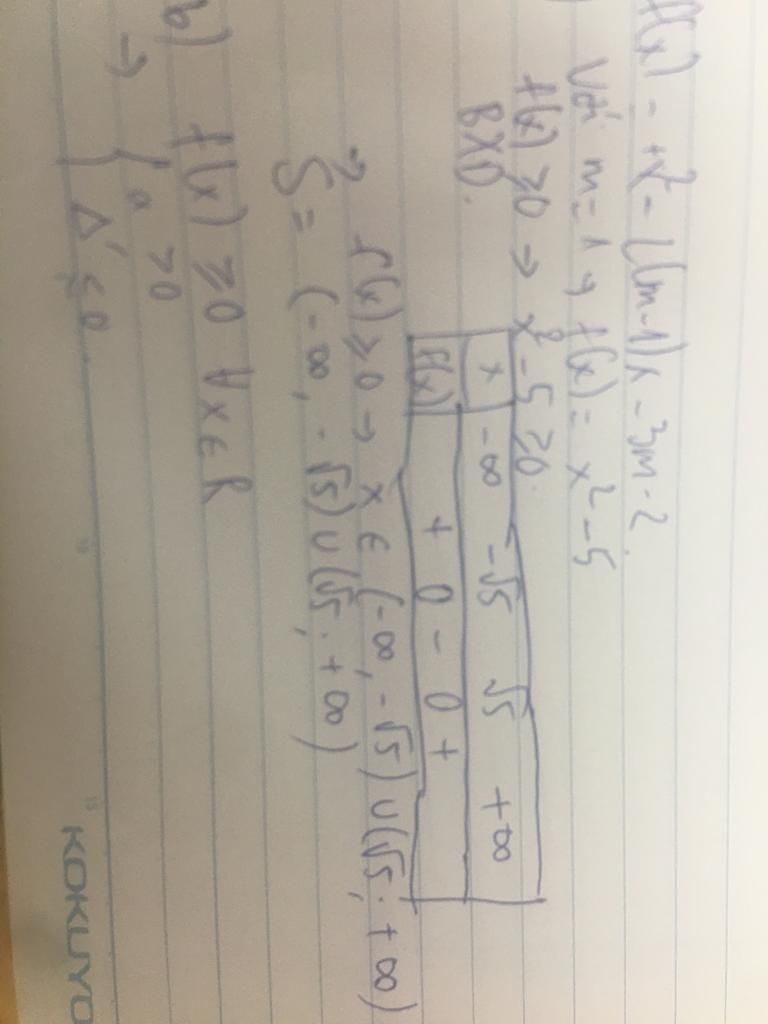 f(x) = +x² - 2(m-1)x - 3m - 2.
Với m = 1 → f(x) = x² - 5
f(x) ≥ 0 → x² - 5 ≥ 0.
BXD.
x -∞ -√5 √5 +∞
f(x) + 0 - 0 +
→ f(x) ≥ 0 → x ∈ (-∞, -√5) ∪ (√5; +∞)
S = (-∞, -√5) ∪ (√5; +∞)
b) f(x) ≥ 0 ∀x ∈ R
→ { a > 0
Δ' ≤ 0.
KOKUYO